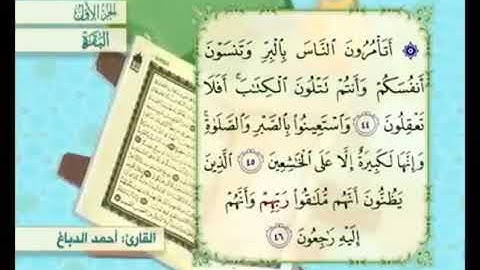 الجزء الأول
البقرة
۞ أَتَأْمُرُونَ النَّاسَ بِالْبِرِّ وَتَنسَوْنَ
أَنفُسَكُمْ وَأَنتُمْ تَتْلُونَ الْكِتَابَ ۚ أَفَلَا
تَعْقِلُونَ ٤٤ وَاسْتَعِينُوا بِالصَّبْرِ وَالصَّلَاةِ ۚ
وَإِنَّهَا لَكَبِيرَةٌ إِلَّا عَلَى الْخَاشِعِينَ ٤٥ الَّذِينَ
يَظُنُّونَ أَنَّهُم مُّلَاقُوا رَبِّهِمْ وَأَنَّهُمْ
إِلَيْهِ رَاجِعُونَ ٤٦
القارئ: أحمد الدباغ